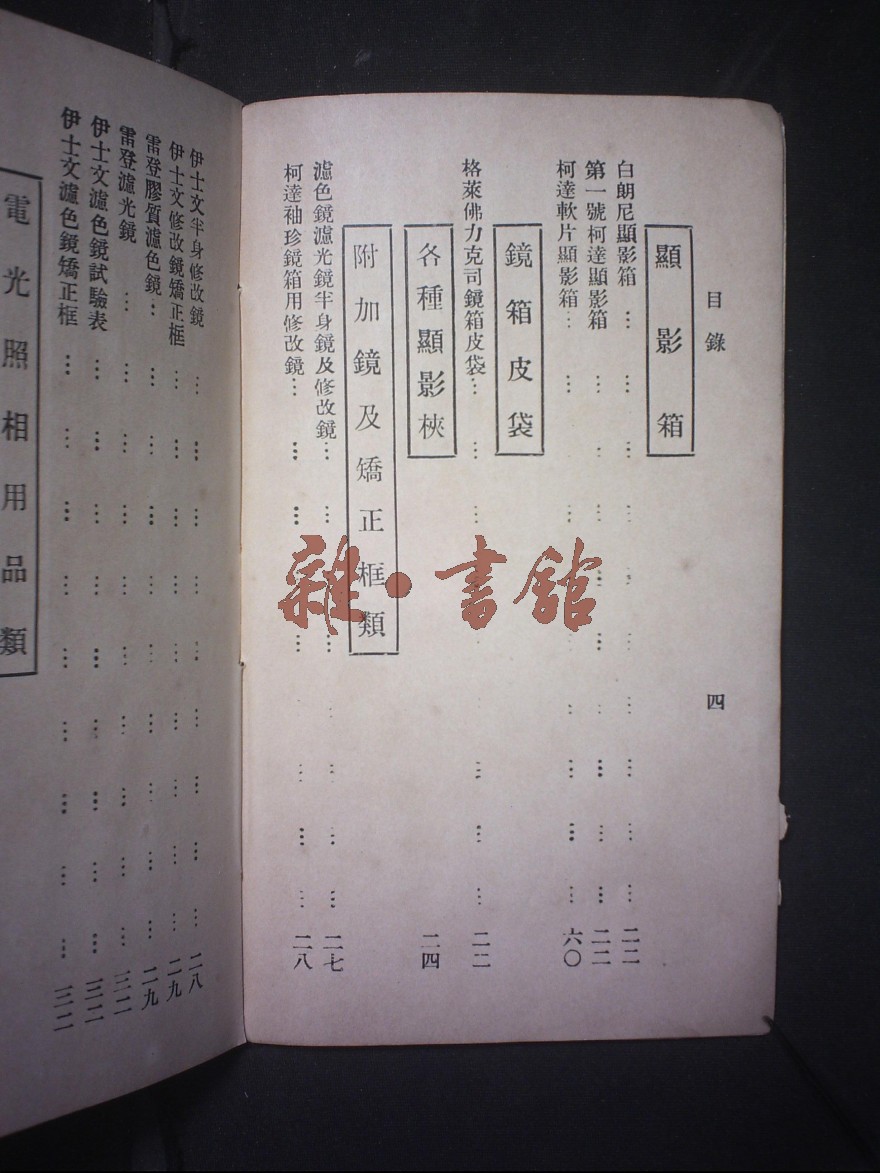 目錄
四
顯影箱
白朗尼顯影箱 … … … … … … … … 二二
第一號柯達顯影箱 … … … … … … … 二二
柯達軟片顯影箱 … … … … … … … … 六〇
鏡箱皮袋
格萊佛力克司鏡箱皮袋 … … … … … … … 二二
各種顯影梜
二四
附加鏡及矯正框類
濾色鏡濾光鏡半身鏡及修改鏡 … … … … … … … 二七
柯達袖珍鏡箱用修改鏡 … … … … … … … … 二八
伊士文半身修改鏡 … … … … … … … … 二八
伊士文修改鏡矯正框 … … … … … … … … 二九
雷登膠質濾色鏡 … … … … … … … … … 二九
雷登濾光鏡 … … … … … … … … … … 三二
伊士文濾色鏡試驗表 … … … … … … … … 三二
伊士文濾色鏡矯正框 … … … … … … … … … 三二
電光照相用品類
雜·書館